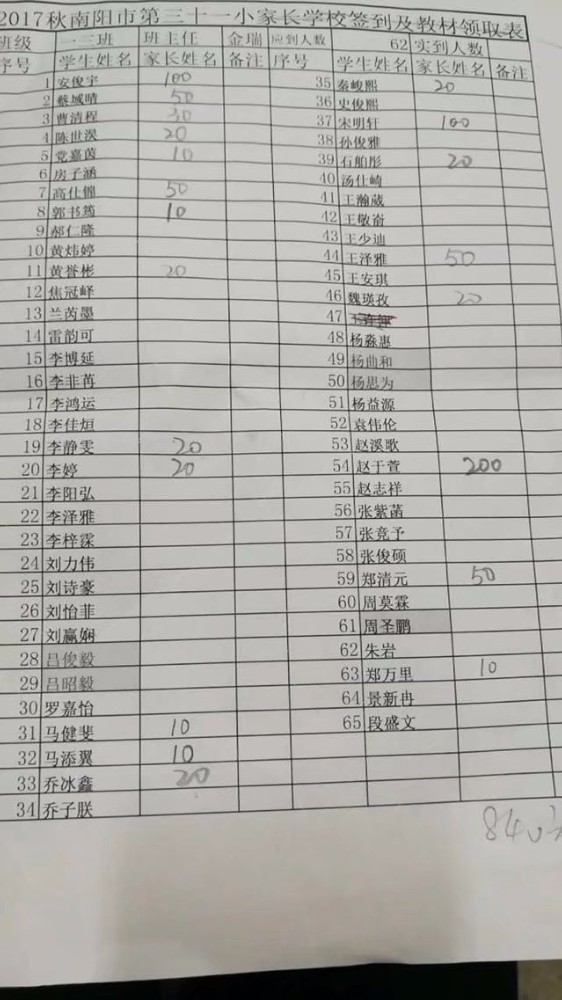 2017秋南阳市第三十一小家长学校签到及教材领取表
班级 一三班 班主任 金瑞 应到人数 62 实到人数
序号 学生姓名 家长姓名 备注 序号 学生姓名 家长姓名 备注
1 安俊宇 100 35 秦峻熙 20
2 蔡城晴 50 36 史俊熙
3 曹清程 30 37 宋明轩 100
4 陈世淏 20 38 孙俊雅
5 党嘉茵 10 39 石舶彤 20
6 房子涵 40 汤仕崎
7 高仕锦 50 41 王瀚葳
8 郭书筠 10 42 王敬斎
9 郝仁隆 43 王少迪
10 黄炜婷 44 王泽雅 50
11 黄誉彬 20 45 王安琪
12 焦冠峄 46 魏瑛孜 20
13 兰芮墨 47
14 雷韵可 48 杨淼惠
15 李博延 49 杨曲和
16 李非苒 50 杨思为
17 李鸿运 51 杨益源
18 李佳烜 52 袁伟伦
19 李静雯 20 53 赵溪歌
20 李婷 20 54 赵于萱 200
21 李阳弘 55 赵志祥
22 李泽雅 56 张紫菡
23 李梓霂 57 张竞予
24 刘力伟 58 张俊硕
25 刘诗豪 59 郑清元 50
26 刘怡菲 60 周莫霖
27 刘赢娴 61 周圣鹏
28 吕俊毅 62 朱岩
29 吕昭毅 63 郑万里 10
30 罗嘉怡 64 景新冉
31 马健斐 10 65 段盛文
32 马添翼 10
33 乔冰鑫 20
34 乔子朕
840